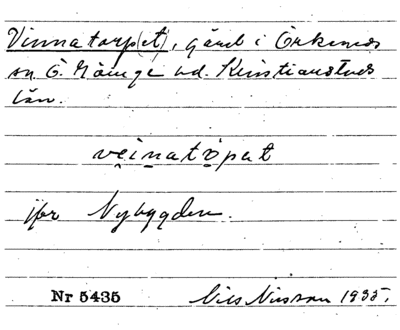 Vinnatorp(et), gård i Örkeneds
sn Ö. Göinge hd. Kristianstads
län.
veinatòpat
jfr Nybygden.
Nr 5435 Nils Nilsson 1935.